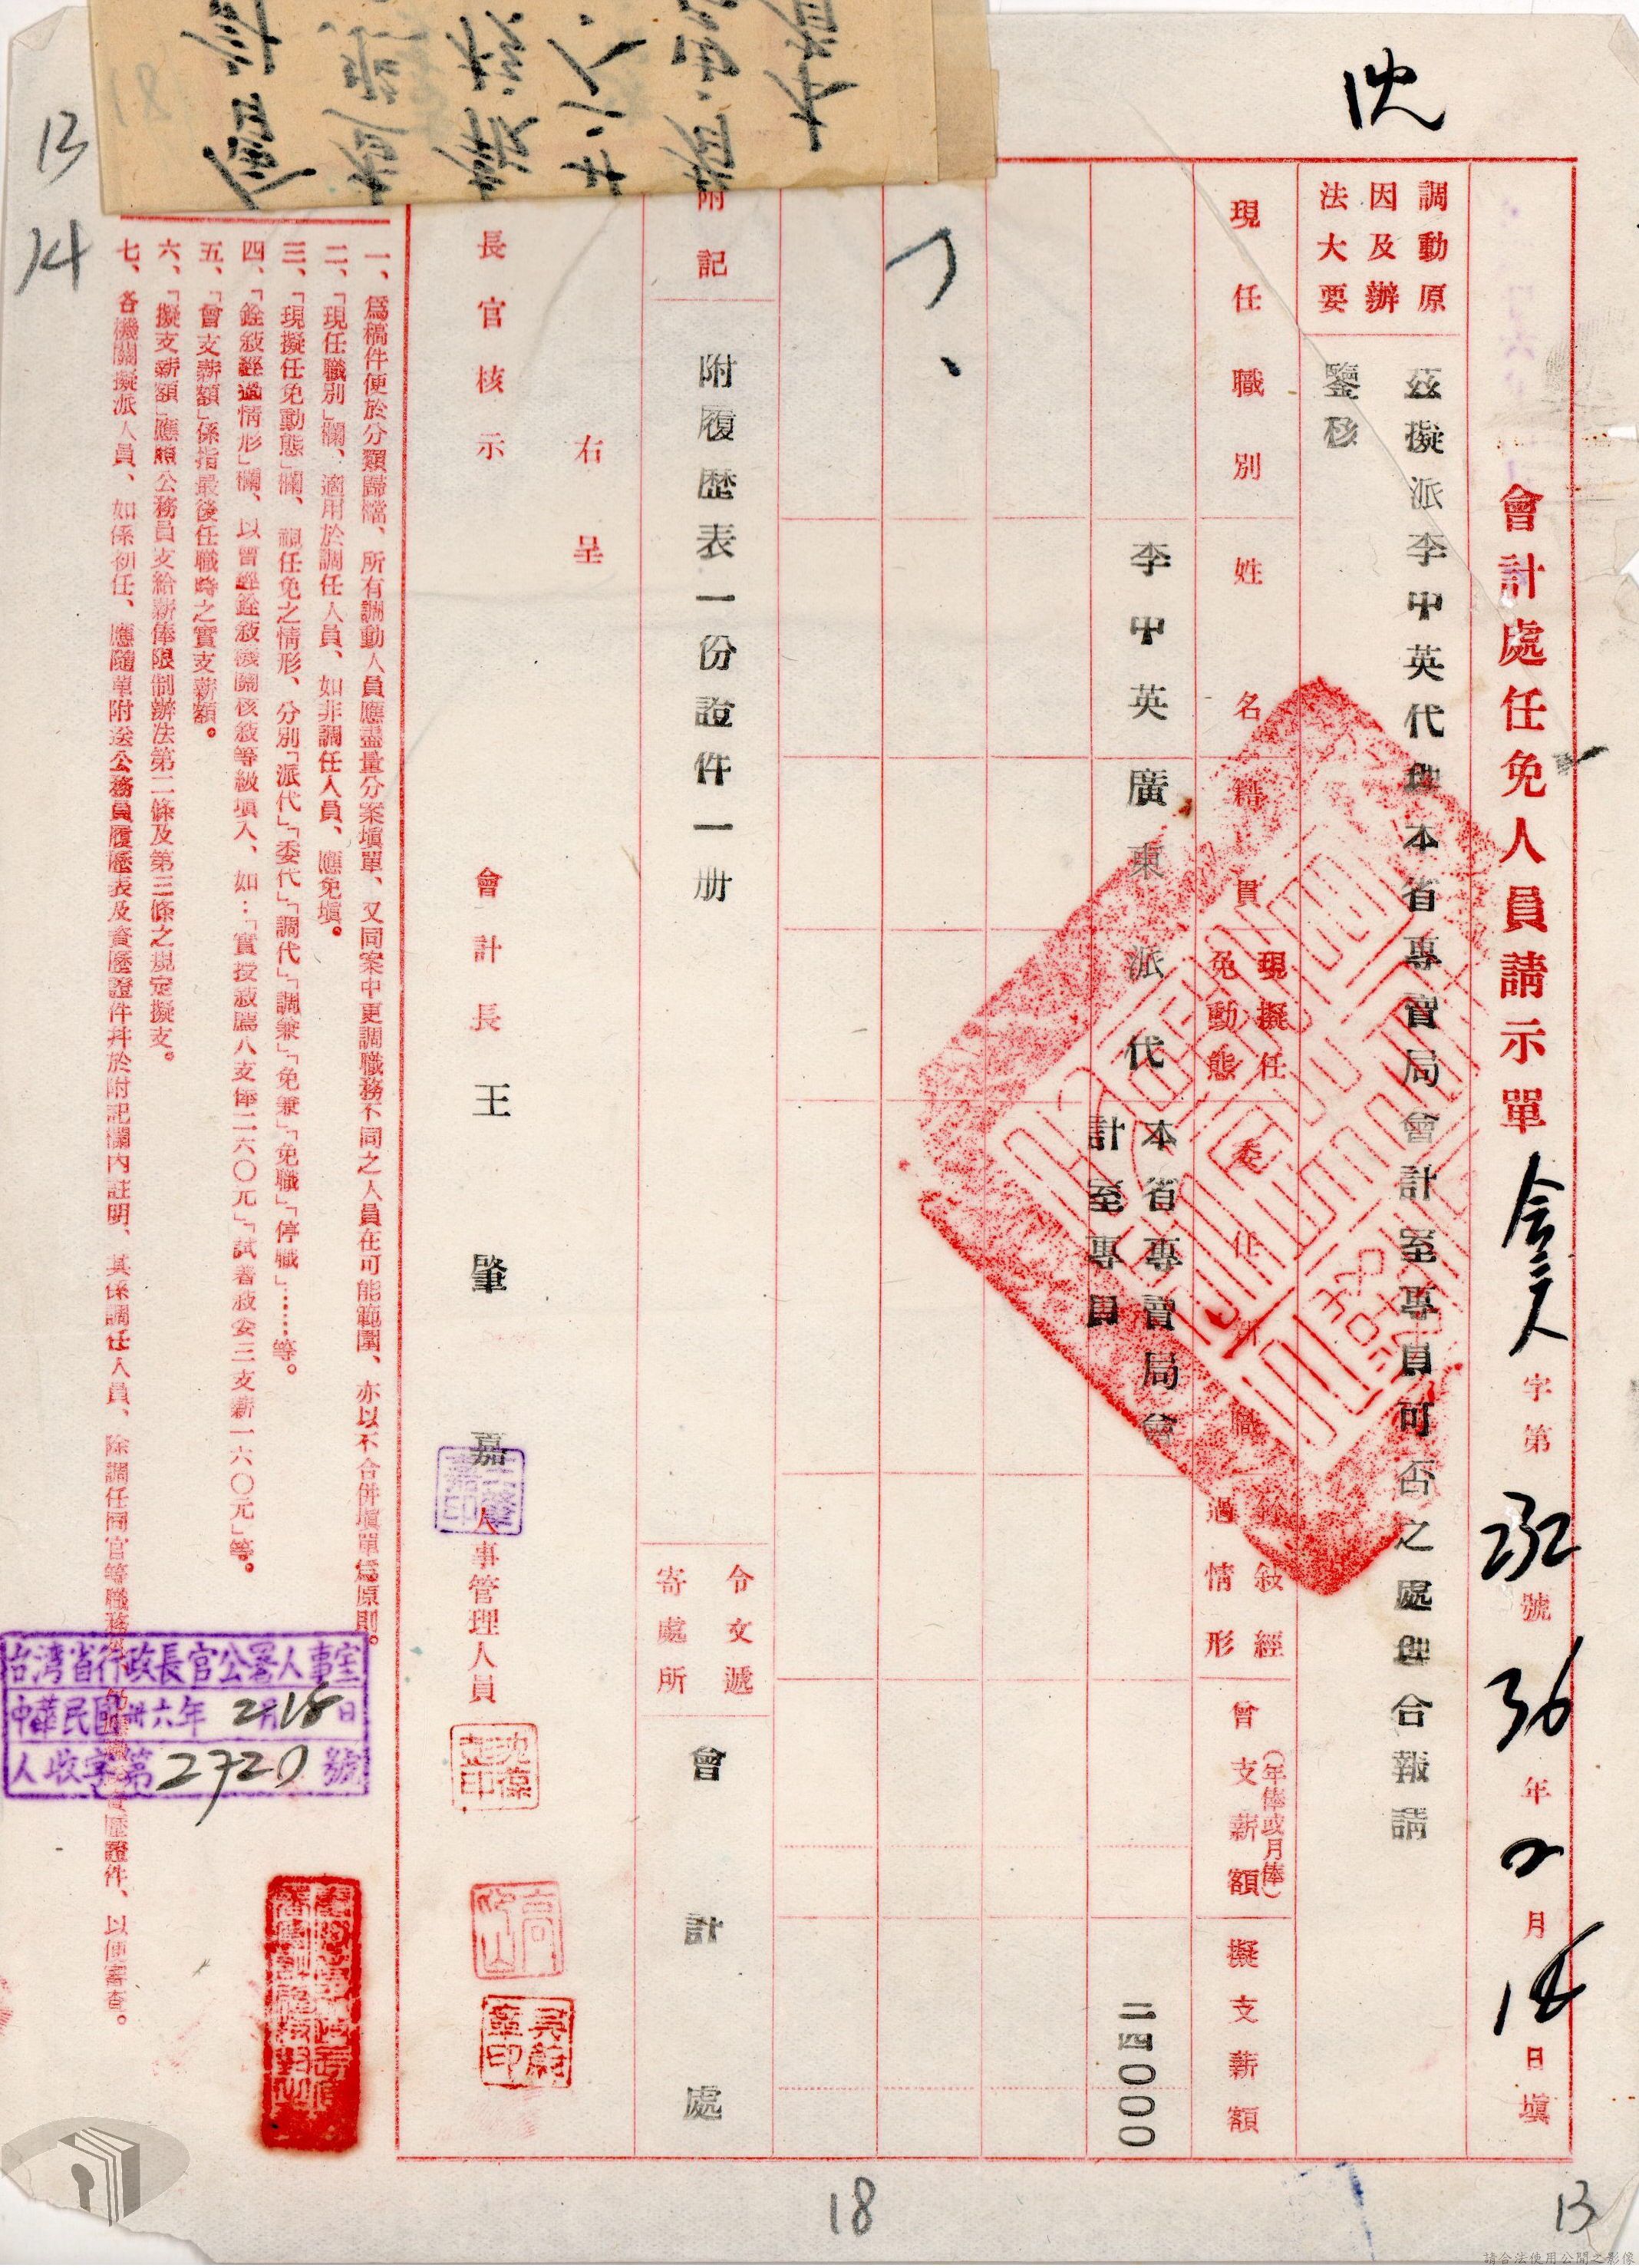 會計處任免人員請示單 會人字第232號 36年2月18日填
調動原因及辦法大要
茲擬派李中英代理本省專賣局會計室專員可否之處理合報請
鑒核
現任職別 姓名 籍貫 現擬任免動態 委任 職 銓敍經過情形 曾支薪額(年俸或月俸) 擬支薪額
李中英 廣東 派代 本省專賣局會計室專員 二四〇〇〇
附記 附履歷表一份證件一册 令文遞寄處所 會計處
右呈
長官核示
會計長王肇嘉 人事管理人員
王肇嘉印
沈葆
一、爲稿件便於分類歸檔、所有調動人員應盡量分案塡單、又同案中更調職務不同之人員在可能範圍、亦以不合併塡單爲原則。
二、「現任職別」欄、適用於調任人員、如非調任人員、應免塡。
三、「現擬任免動態」欄、視任免之情形、分別「派代」「委代」「調代」「調兼」「免兼」「免職」「停職」……等。
四、「銓敍經過情形」欄、以曾經銓敍機關核敍等級塡入、如：「實授敍薦八支俸二六〇元」「試署敍委三支薪一六〇元」等。
五、「曾支薪額」係指最後任職時之實支薪額。
六、「擬支薪額」應照公務員支給薪俸限制辦法第二條及第三條之規定擬支。
七、各機關擬派人員、如係初任、應隨單附送公務員履歷表及資歷證件幷於附記欄內註明、其係調任人員、除調任同官等職務外、仍應檢資歷證件、以便審查。
台湾省行政長官公署人事室
中華民國卅六年2月18日
人收字第2720號
沈
13
14
18
13
請合法使用公開之影像